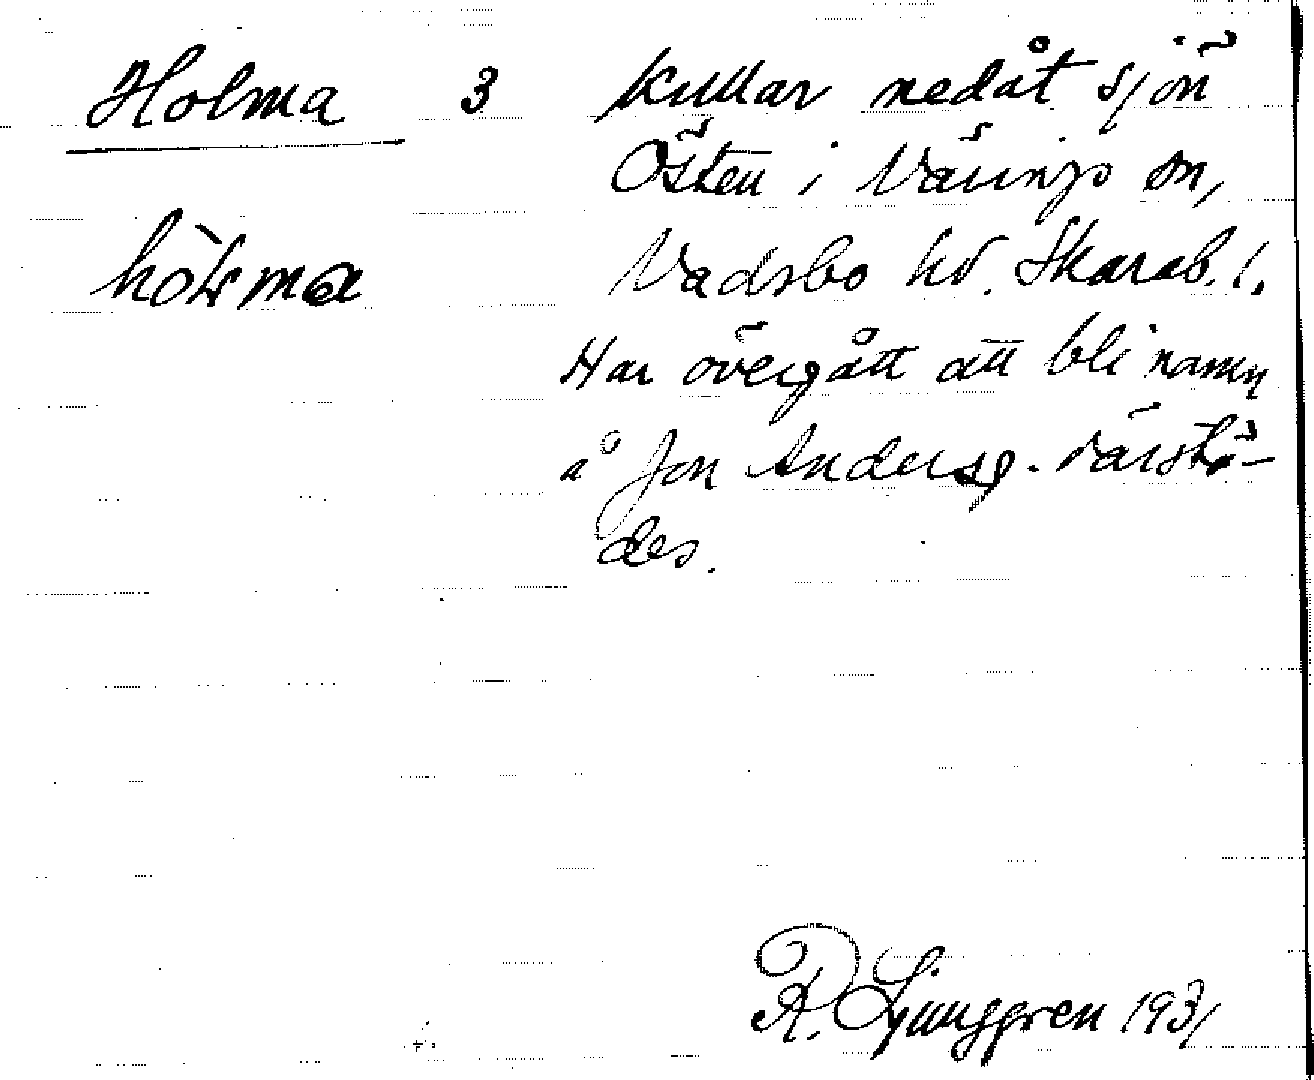 Holma 3 Kullar nedåt sjön
Östen i Värings sn,
hòlma Vadsbo hd. Skarab. l.
Har övergått att bli namn
å Jon Anders g. därstä-
des.
R. Ljunggren 1931